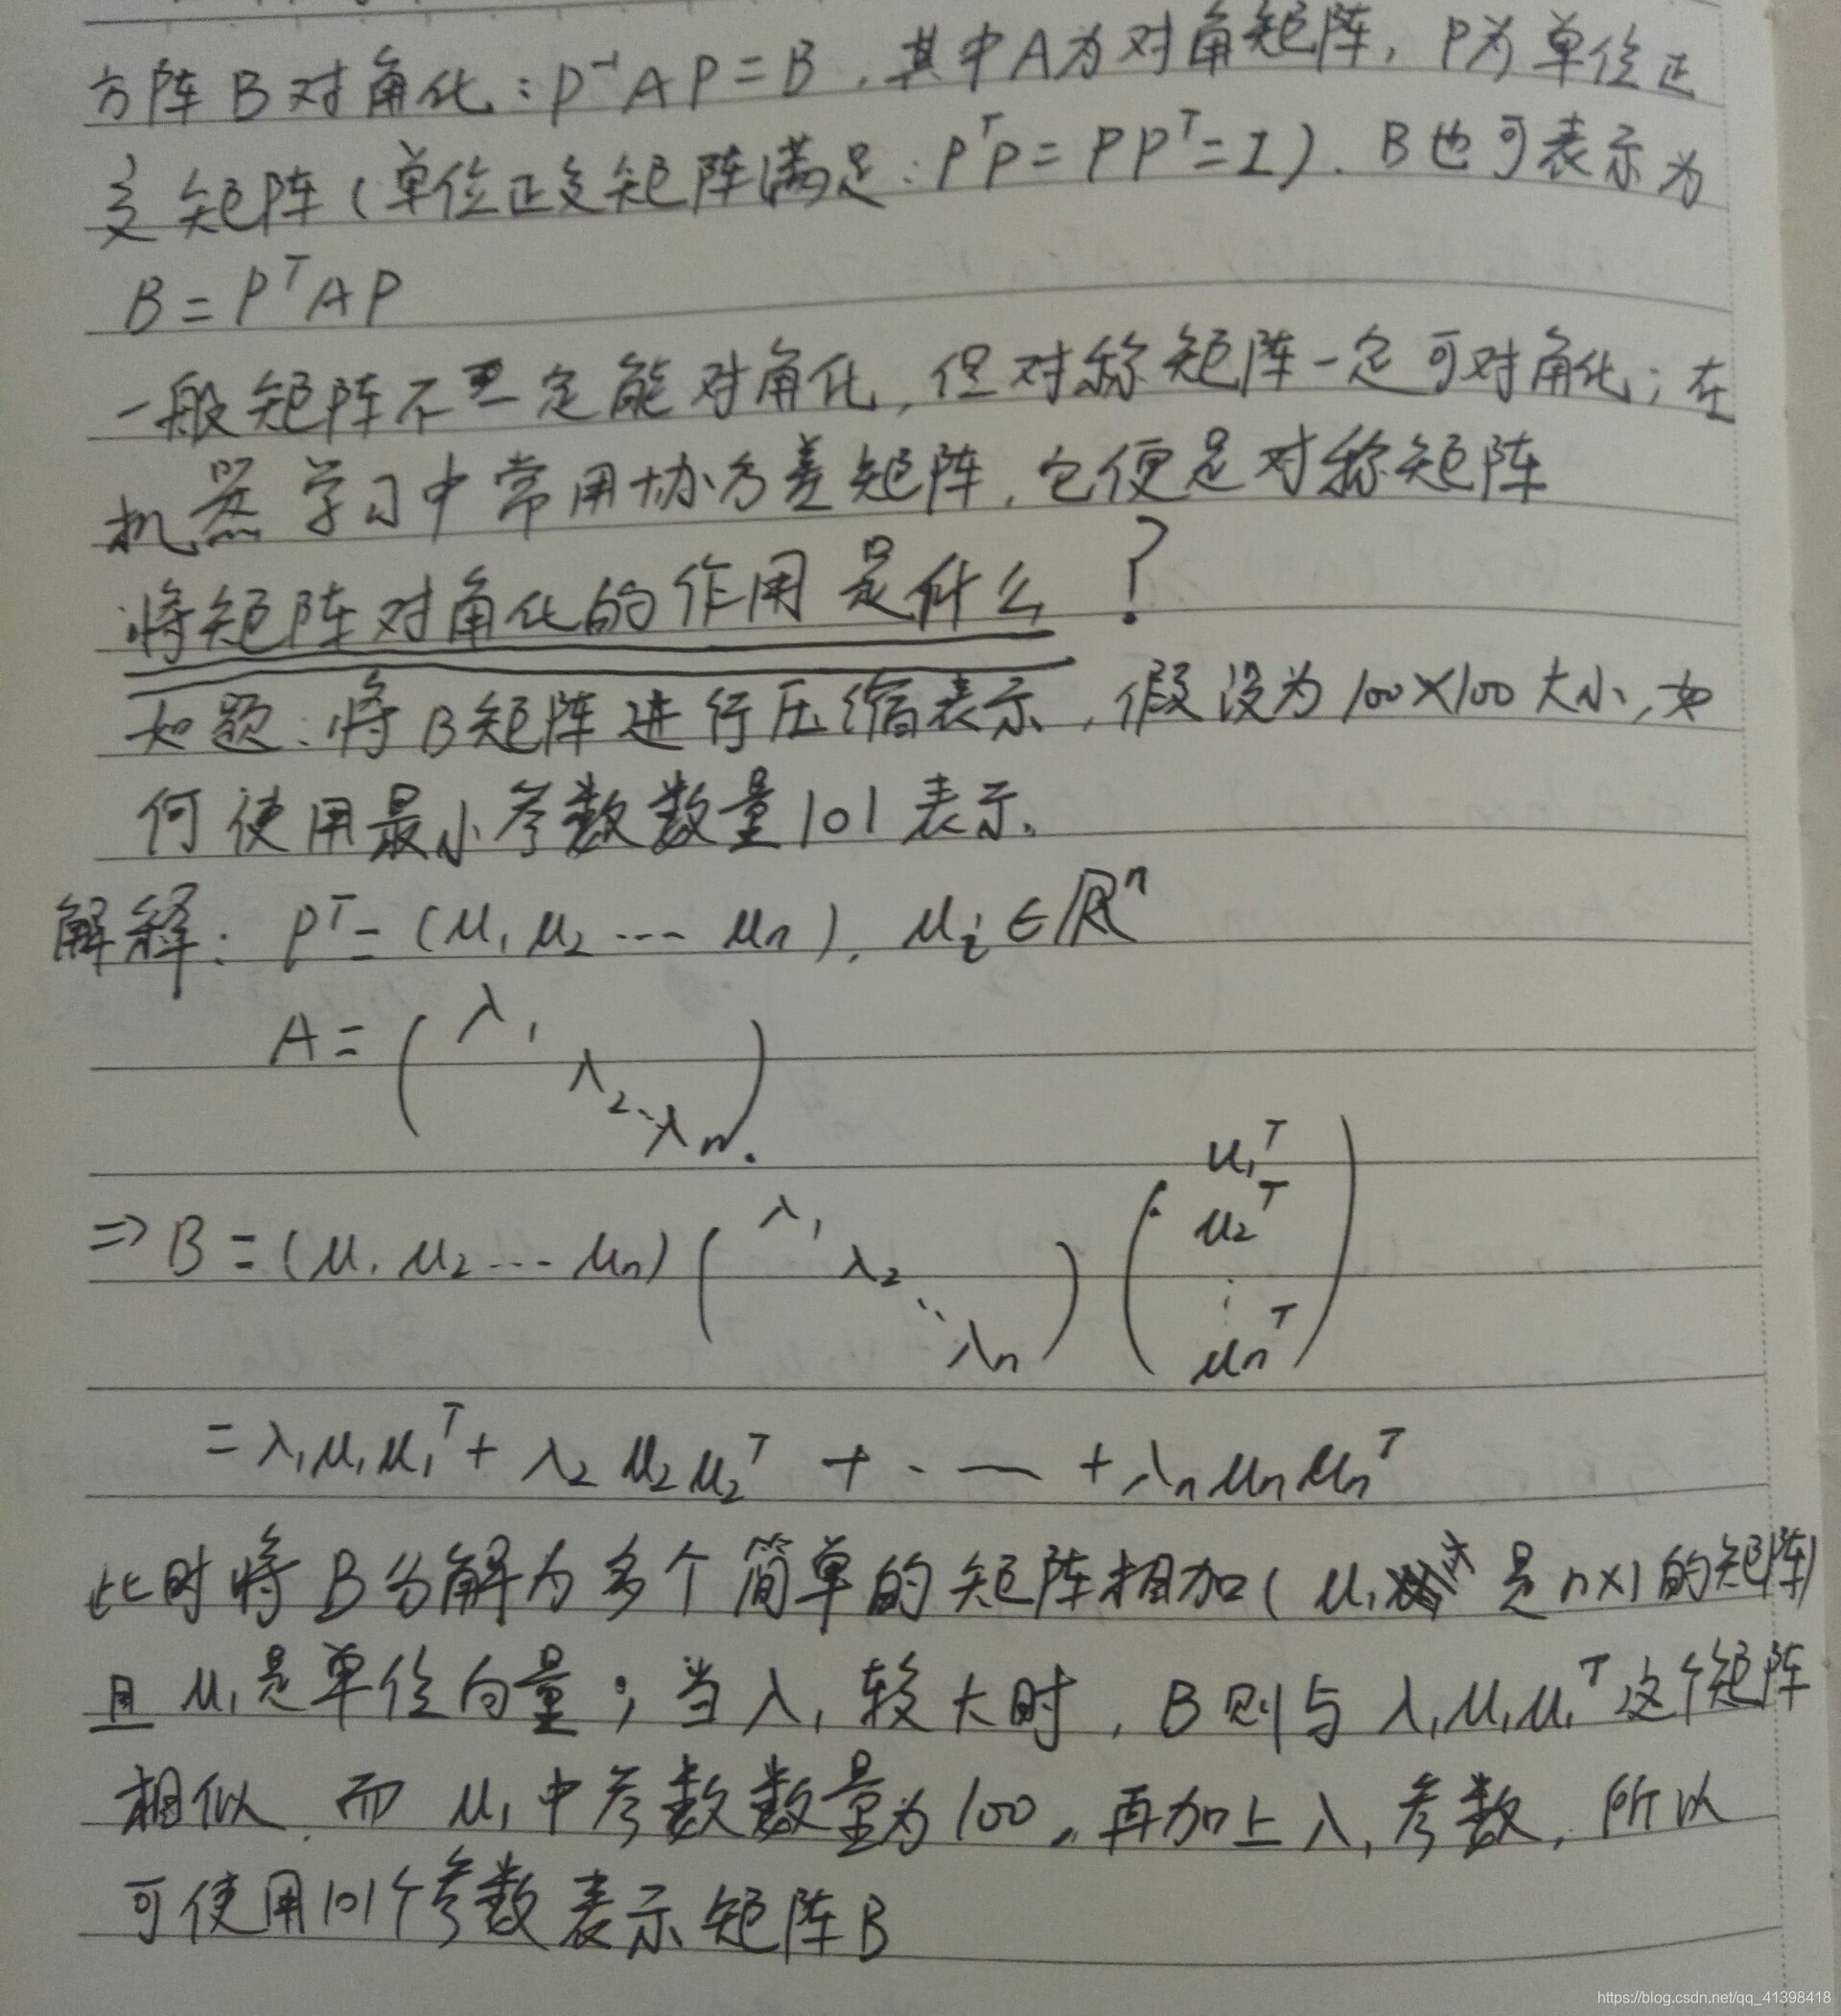 方阵B对角化:P⁻¹AP=B,其中A为对角矩阵,P为单位正
交矩阵(单位正交矩阵满足:PᵀP=PPᵀ=I).B也可表示为
B=PᵀAP
一般矩阵不一定能对角化,但对称矩阵一定可对角化;在
机器学习中常用协方差矩阵,它便是对称矩阵
将矩阵对角化的作用是什么?
如题:将B矩阵进行压缩表示,假设为100×100大小,如
何使用最小参数数量101表示.
解释: Pᵀ=(μ₁ μ₂ ... μₙ), μᵢ∈ℝⁿ
A=(λ₁ λ₂ ⋱ λₙ).
⇒B=(μ₁ μ₂ ... μₙ)(λ₁ λ₂ ⋱ λₙ)(μ₁ᵀ μ₂ᵀ ⋮ μₙᵀ)
=λ₁μ₁μ₁ᵀ+λ₂μ₂μ₂ᵀ+...+λₙμₙμₙᵀ
此时将B分解为多个简单的矩阵相加(μ₁是n×1的矩阵)
且μ₁是单位向量;当λ₁较大时,B则与λ₁μ₁μ₁ᵀ这个矩阵
相似.而μ₁中参数数量为100,再加上λ₁参数,所以
可使用101个参数表示矩阵B
https://blog.csdn.net/qq_41398418